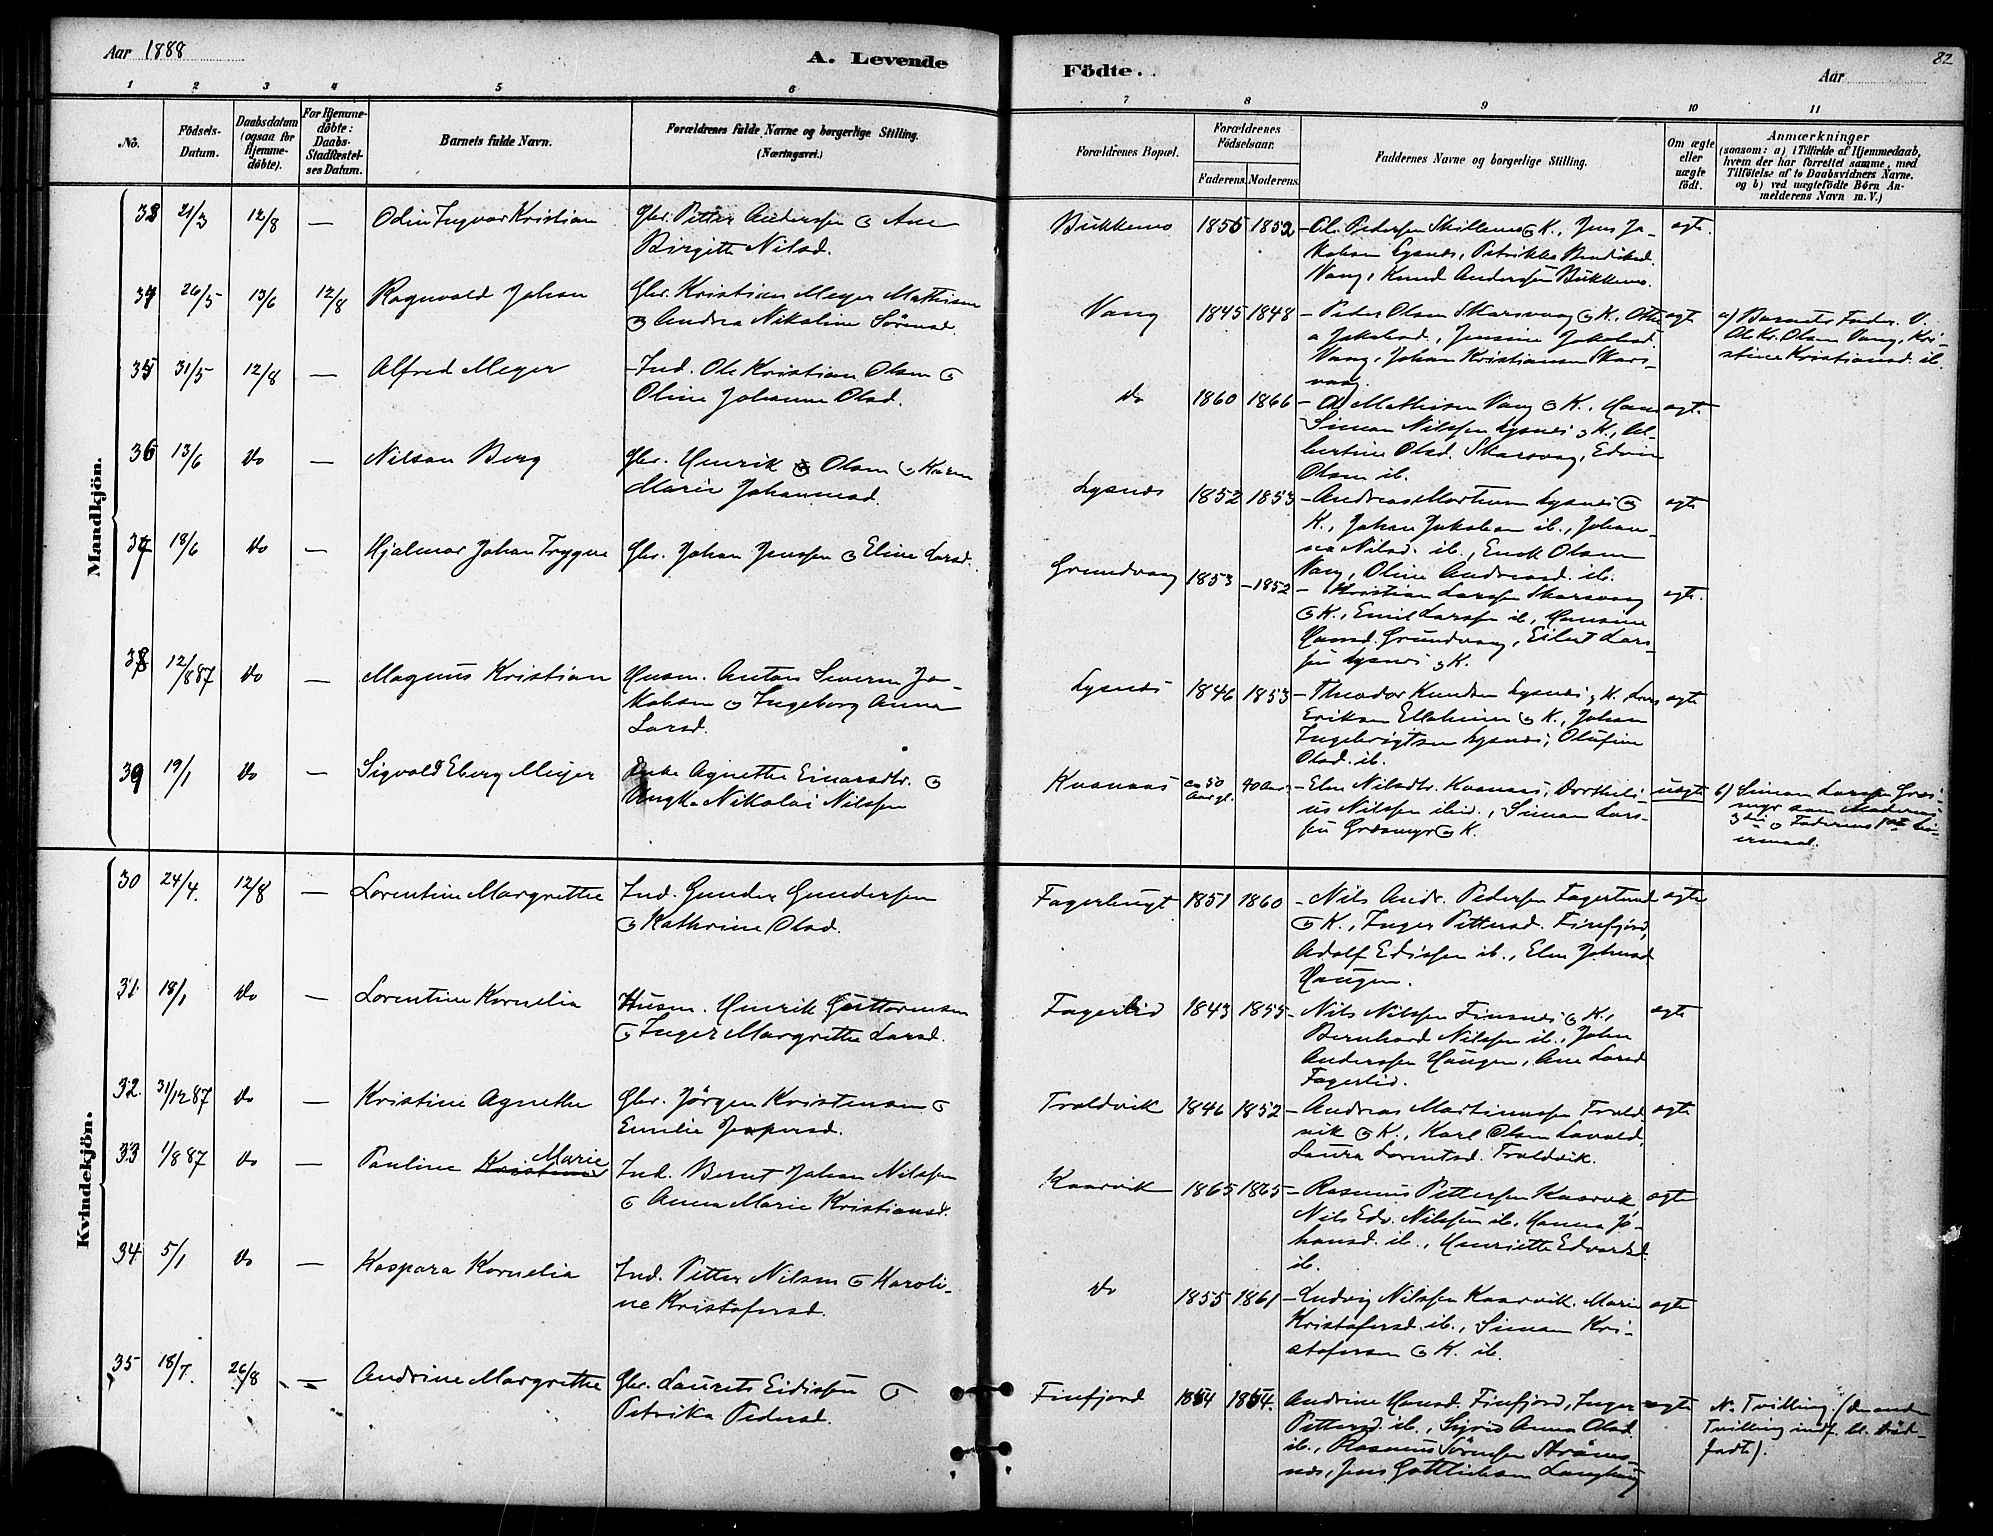 Aar 1888
A. Levende
Födte.
Aar
82
1 2 3 4 5 6 7 8 9 10 11
No.
Födsels-
Datum.
Daabsdatum
(ogsaa for
Hjemme-
döbte).
For Hjemme-
döbte:
Daabs-
Stadfæstel-
ses Datum.
Barnets fulde Navn.
Forældrenes fulde Navne og borgerlige Stilling.
(Næringsvei.)
Forældrenes Bopæl.
Forældrenes
Födselsaar.
Faderens. Moderens.
Faddernes Navne og borgerlige Stilling.
Om ægte
eller
uægte
födt.
Anmærkninger
(saasom: a) i Tilfælde af Hjemmedaab,
hvem der har forrettet samme, med
Tilföielse af to Daabsvidners Navne.
og b) ved uægtefödte Börn An-
melderens Navn m. V.)
Mandkjön.
33 21/3 12/8 — Odin Ingvar Kristian
Gbr. Petter Anderssen og Ane
Birgitte Nilsd.
Bukkemo 1855 1852
— Ol. Pedersen Skillemo og K., Jens Ja-
kobsen Lysnes, Petrikka Bendiksd.
Vang, Knud Anderssen Bukkemo.
ægte.
34 26/5 13/6 12/8 Ragnvald Johan
Gbr. Kristian Meyer Mathisen
og Andrea Nikoline Sörensd.
Vang 1845 1848
— Peder Olsen Skarsvaag og K. Othe-
a Jakobsd., Jensine Jakobsd.
Vang, Johan Kristiansen Skars-
vaag.
ægte
a) Barnets Fader. V.
Ole Kr. Olsen Vang, Kri-
stine Kristiansd. ib.
35 31/5 12/8 — Alfred Meyer
Ind. Ole Kristian Olsen og
Oline Johanne Olsd.
do 1860 1866
— Ol Mathisen Vang og K., Hans
Simon Nilssen Lysnes og K., Al-
bertine Olsd. Skarsvaag, Edvin
Olsen ib.
ægte.
36 13/6 do — Nilsan Berg
Gbr. Henrik Olsen og Karen
Marie Johannesd.
Lysnes 1852 1853
— Andreas Mortensen Lysnes og
K., Johan Jakobsen ib., Johan-
na Nilsd. ib., Enok Olsen
Vang, Oline Andreasd. ib.
ægte
37 18/6 do — Hjalmar Johan Trygve
Gbr. Johan Jenssen og Eline Larsd.
Grundvaag 1853 — 1852
— Kristian Larssen Skarsvaag
og K., Emil Larssen ib., Hansine
Hansd. Grundvaag, Eilert Lars-
sen Lysnes og K.
ægte.
38 12/8 87 do — Magnus Kristian
Husm. Anton Severin Ja-
kobsen og Ingeborg Anna
Larsd.
Lysnes 1846 1853
— Theodor Knudsen Lysnes og K. Lars
Eriksen Ellsheim og K., Johan
Ingebrigtsen Lysnes, Olufine
Olsd. ib.
ægte
39 19/1 do — Sigvald Eberg Meyer
Enke Agnethe Einarsdtr. og
Ungk. Nikolai Nilssen
Kvanaas ca 50 Aar gl. 40 Aar
— Elen Nilsdtr. Kvanaas, Dortheli-
us Nilssen ibid., Simon Lars-
sen Græsmyr og K.
uægte
b) Simon Larssen Græs-
myr som Moderens
3die og Faderens 1ste Lei-
ermaal.
Kvindekjön.
30 24/4. 12/8 — Lorentine Margrethe
Ind. Gunder Gundersen
og Kathrine Olsd.
Fagerbugt 1851 1860
— Nils Andr. Pedersen Fagerlund
og K., Inger Pettersd. Finfjord,
Adolf Edissen ib., Elen Johnsd.
Haugen.
ægte
31. 18/1 do — Lorentine Kornelia
Husm. Henrik Guttormsen
og Inger Margrethe Larsd.
Fagerlid 1843 1855
— Nils Nilssen Finsnes og K.,
Bernhard Nilssen ib., Johan
Anderssen Haugen, Ane Larsd
Fagerlid.
ægte
32. 31/12 87 do — Kristine Agnethe
Gbr. Jörgen Kristensen og
Emelie Jespersd.
Troldvik 1846 1852
— Andreas Martinussen Trold-
vik og K., Karl Olsen Lavold,
Laura Lorentsd. Troldvik.
ægte
33 1/8 87 do — Pauline Kristine Marie
Ind. Bernt Johan Nilssen
og Anna Marie Kristiansd.
Kaarvik 1865 1865
— Rasmus Pettersen Kaarvik,
Nils Edv. Nilssen ib. Hanna Jo-
hansd. ib., Henriette Edvardsd.
ib.
ægte
34 5/1 do — Kaspara Kornelia
Ind. Petter Nilsen og Karoli-
ne Kristofersd.
do 1855 1861
— Ludvig Nilssen Kaarvik. Marie
Kristofersd. ib., Simon Kri-
stofersen og K. ib.
ægte
35 18/7. 26/8 — Andrine Margrethe
Gbr. Laurits Eidissen og
Petrika Pedersd.
Finfjord 1854 1854.
Andrine Hansd. Finfjord, Inger
Pettersd. ib., Sigrid Anna Olsd.
ib., Rasmus Sörensen Ströms-
nes, Jens Gottliebsen Langhaug
ægte
N. Tvilling. (den anden
Tvilling indf. bl. död-
födte).